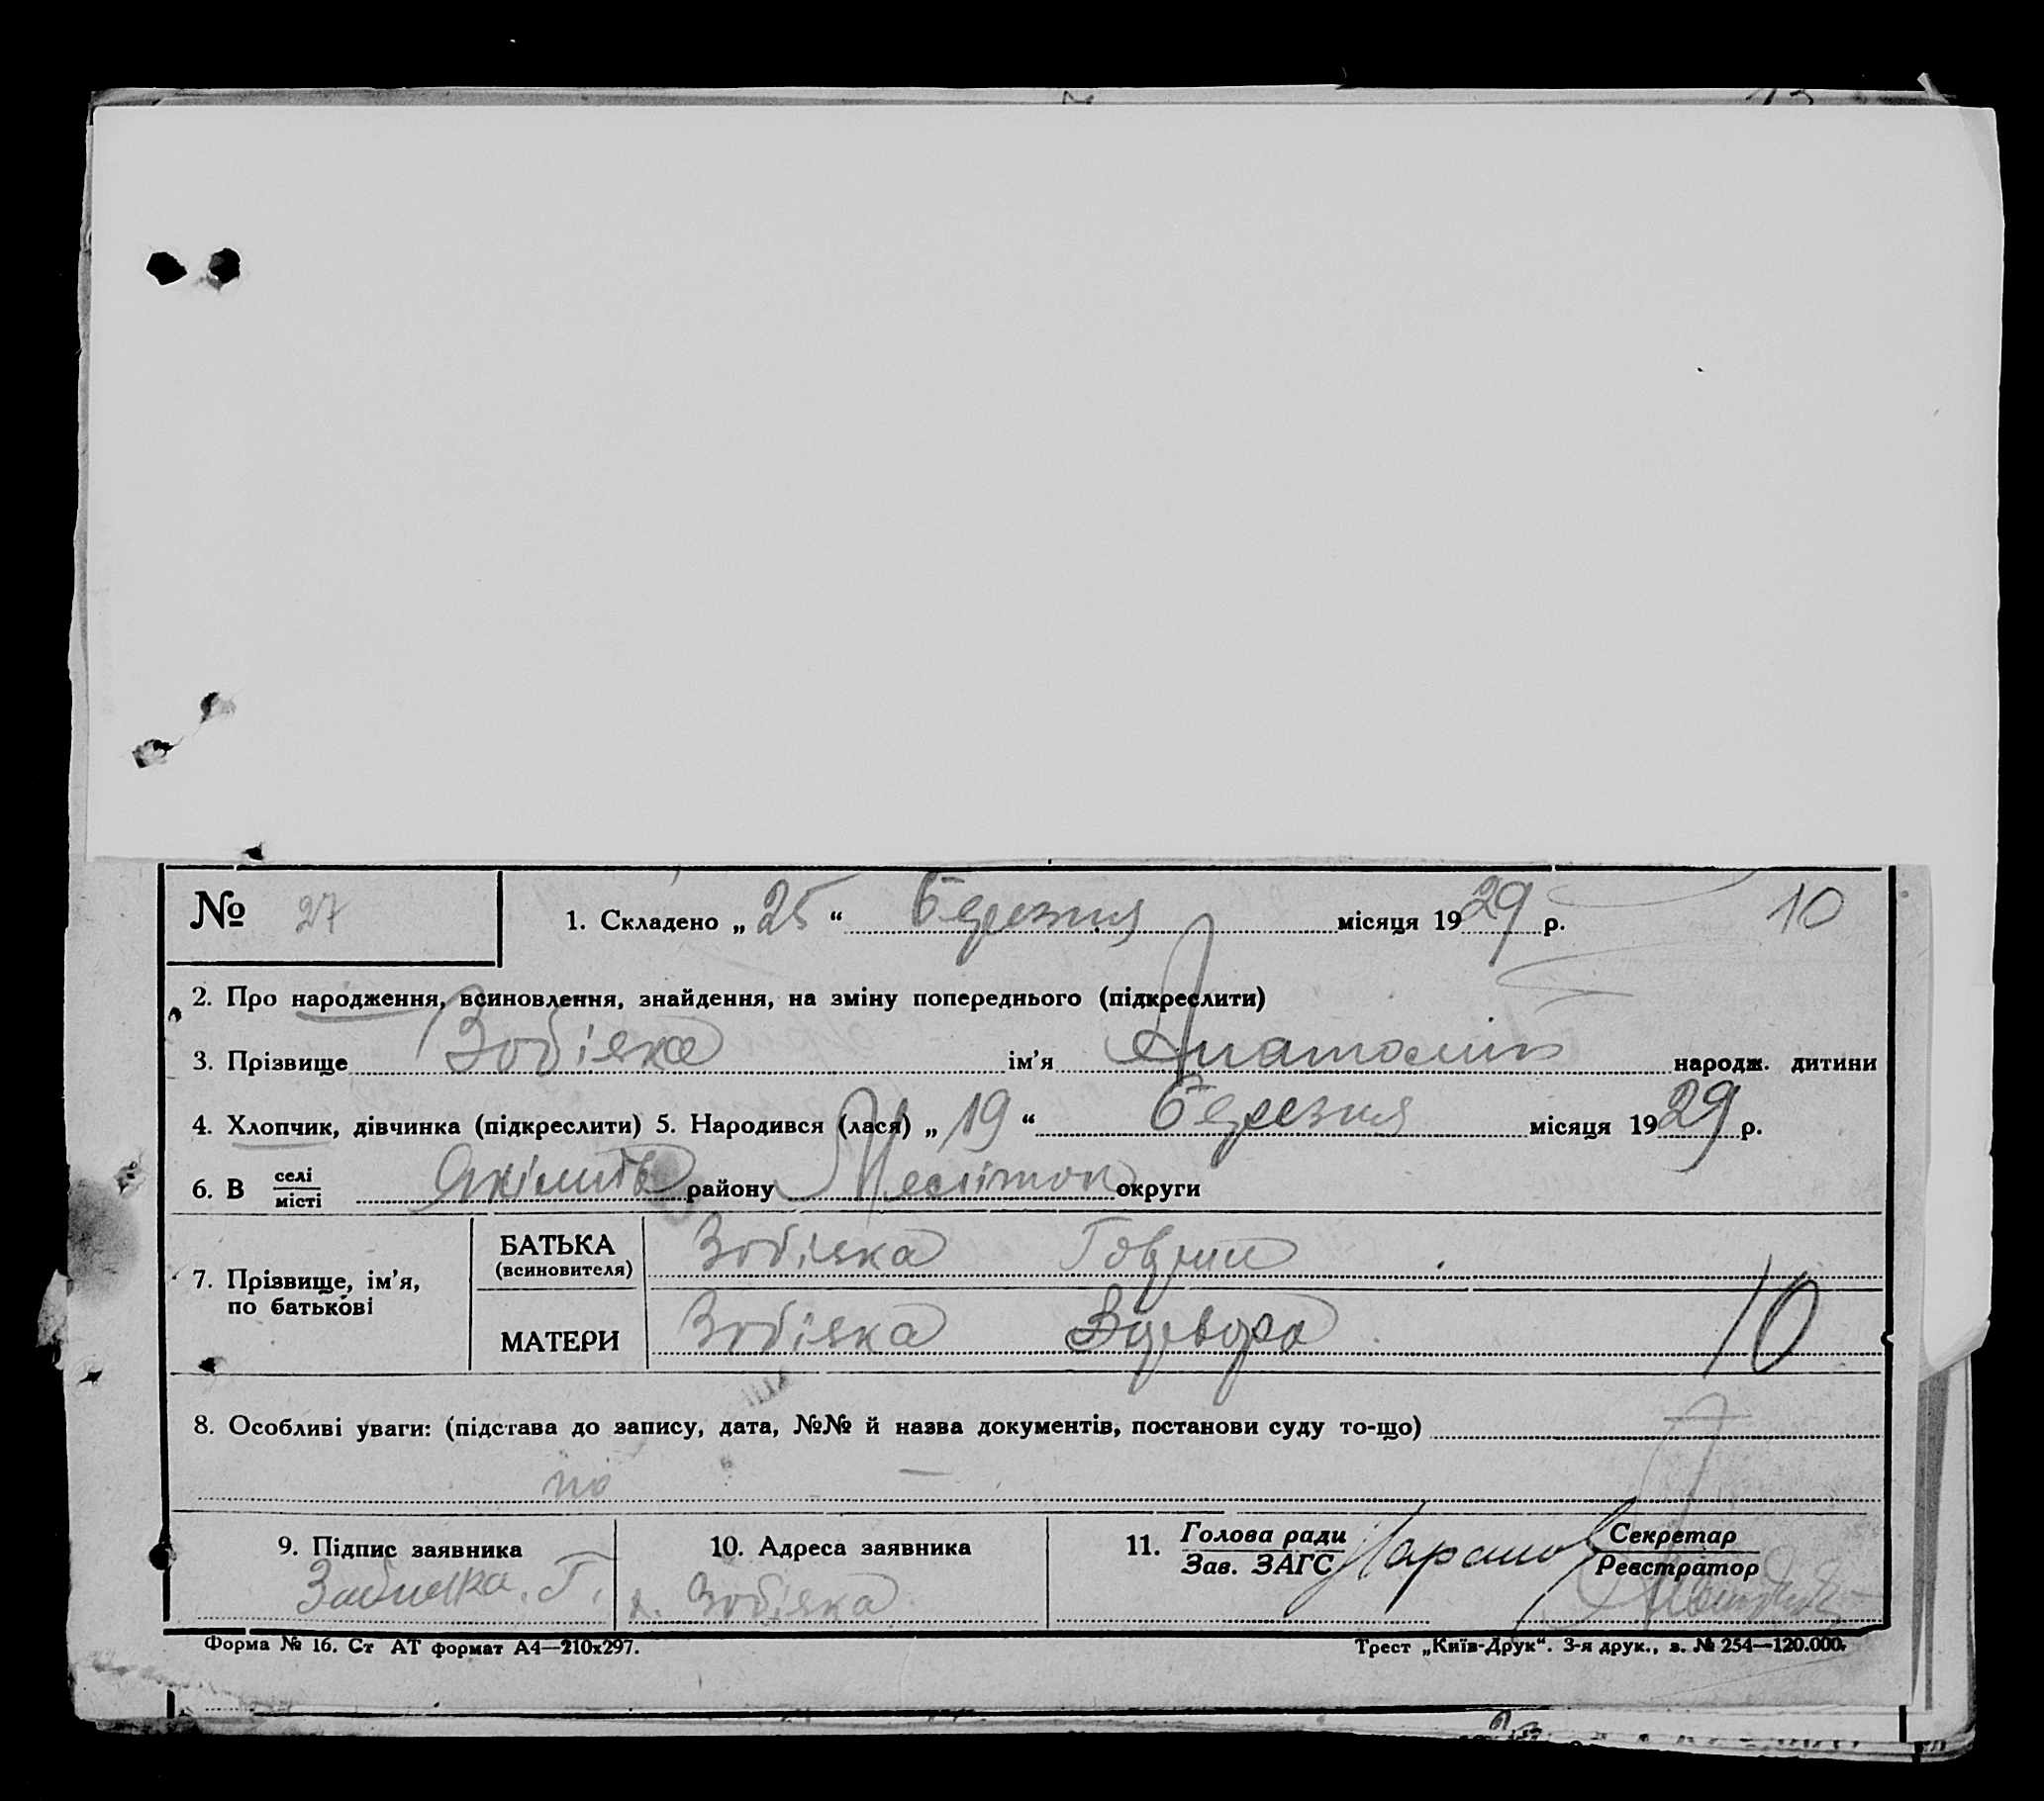 № 27
1. Складено „ 25 “ Березня місяця 1929 р. 10
2. Про народження, всиновлення, знайдення, на зміну попереднього (підкреслити)
3. Прізвище Зобіяка ім’я Анатолій народж. дитини
4. Хлопчик, дівчинка (підкреслити) 5. Народився (лася) „ 19 “ Березня місяця 1929 р.
6. В селі/місті району округи
7. Прізвище, ім’я, по батькові
БАТЬКА (всиновителя) Зобіяка
МАТЕРИ Зобіяка
10
8. Особливі уваги: (підстава до запису, дата, №№ й назва документів, постанови суду то-що)
9. Підпис заявника
10. Адреса заявника
Зобіяка
11. Голова ради/Зав. ЗАГС Секретар/Реєстратор
Форма № 16. Ст АТ формат А4—210х297. Трест „Київ-Друк“. 3-я друк., з. № 254—120.000.